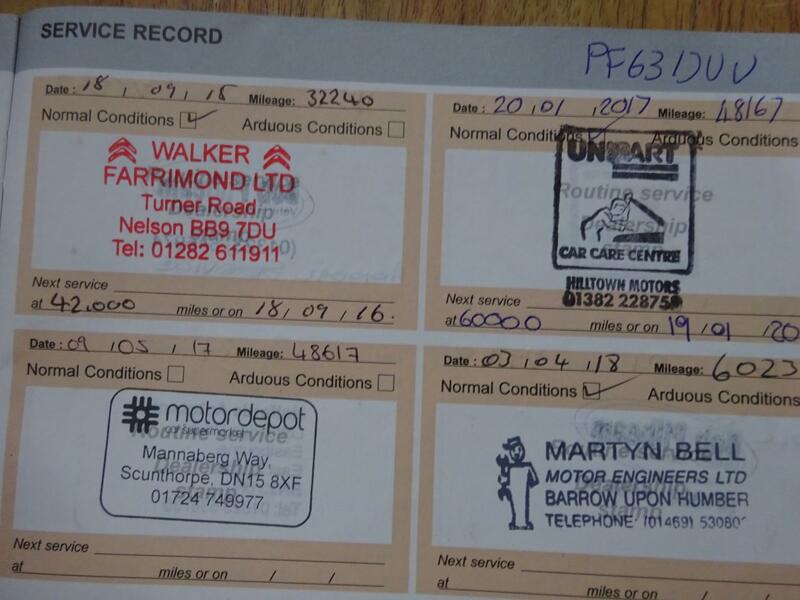 SERVICE RECORD
PF63 DUU
Date: 18, 09, 15 Mileage: 32240
Normal Conditions Arduous Conditions
WALKER
FARRIMOND LTD
Turner Road
Nelson BB9 7DU
Tel: 01282 611911
Next service
at 42,000 miles or on 18, 09, 16.
Date: 20, 01, 2017 Mileage: 48167
Normal Conditions Arduous Conditions
Routine service
Dealership
CAR CARE CENTRE
HILLTOWN MOTORS
01382 228759
Next service
at 60000 miles or on 19, 01, 20
Date: 09, 05, 17 Mileage: 48617
Normal Conditions Arduous Conditions
motordepot
car supermarket
Routine service
Mannaberg Way,
Dealership
Scunthorpe, DN15 8XF
stamp
01724 749977
Next service
at miles or on / /
Date: 03, 04, 18 Mileage: 6023
Normal Conditions Arduous Conditions
MARTYN BELL
MOTOR ENGINEERS LTD
BARROW UPON HUMBER
TELEPHONE (01469) 53080
Next service
at miles or on / /